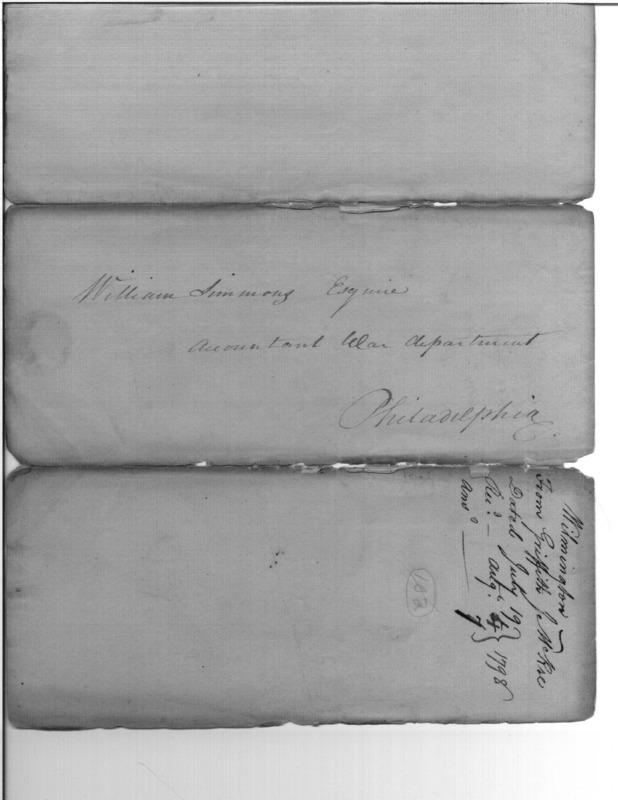 William Simmons Esquire
Accountant War department
Philadelphia.
Wilmington
From Griffith J. McRee
Dated July 19
Recd. - Aug.
Ansd.
7
} 1798
182